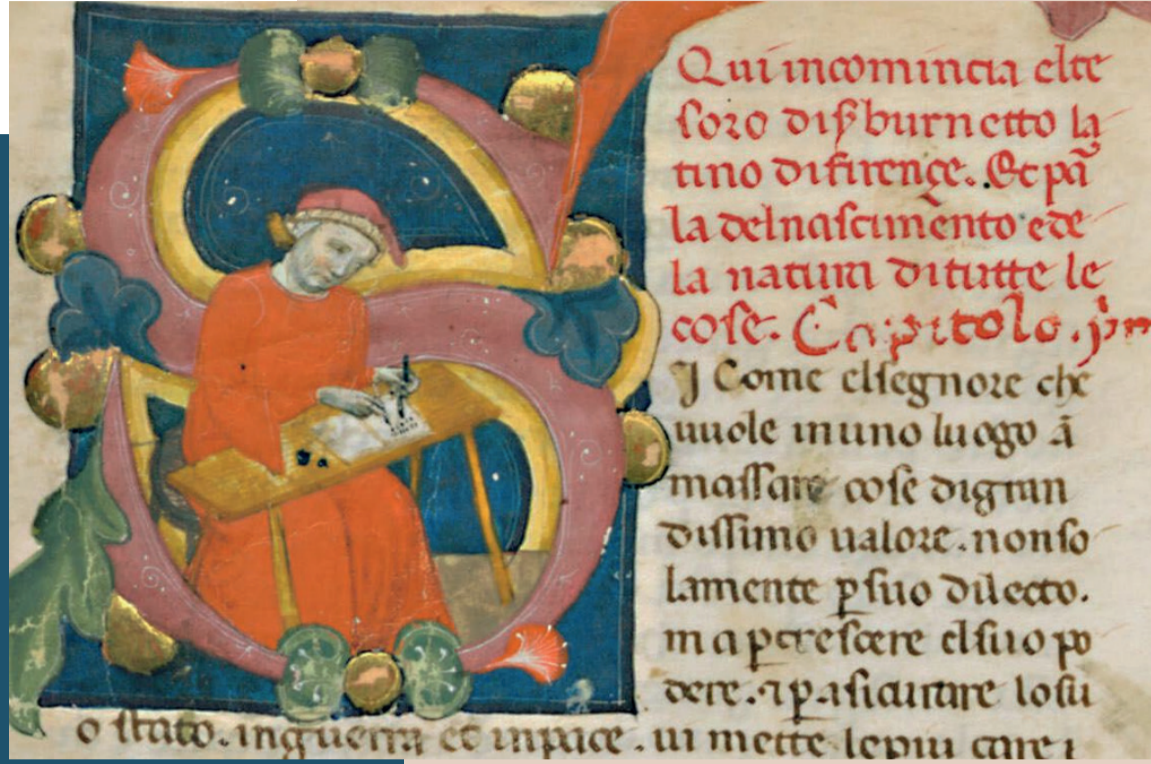 Qui incomincia elte
soro di s̉ burnetto la
tino di firençe. Et pā
la del nascimento e de
la natura di tutte le
cose. Capitolo. pm̄
I Come el segnore che
uuole in uno luogo ā
massare cose di gran
dissimo ualore. non so
lamente ꝑ suo dilecto.
ma ꝑ crescere el suo po
dere. ⁊ ꝑ asicurare lo su
o stato. in guerra et in pace. ui mette le piu care